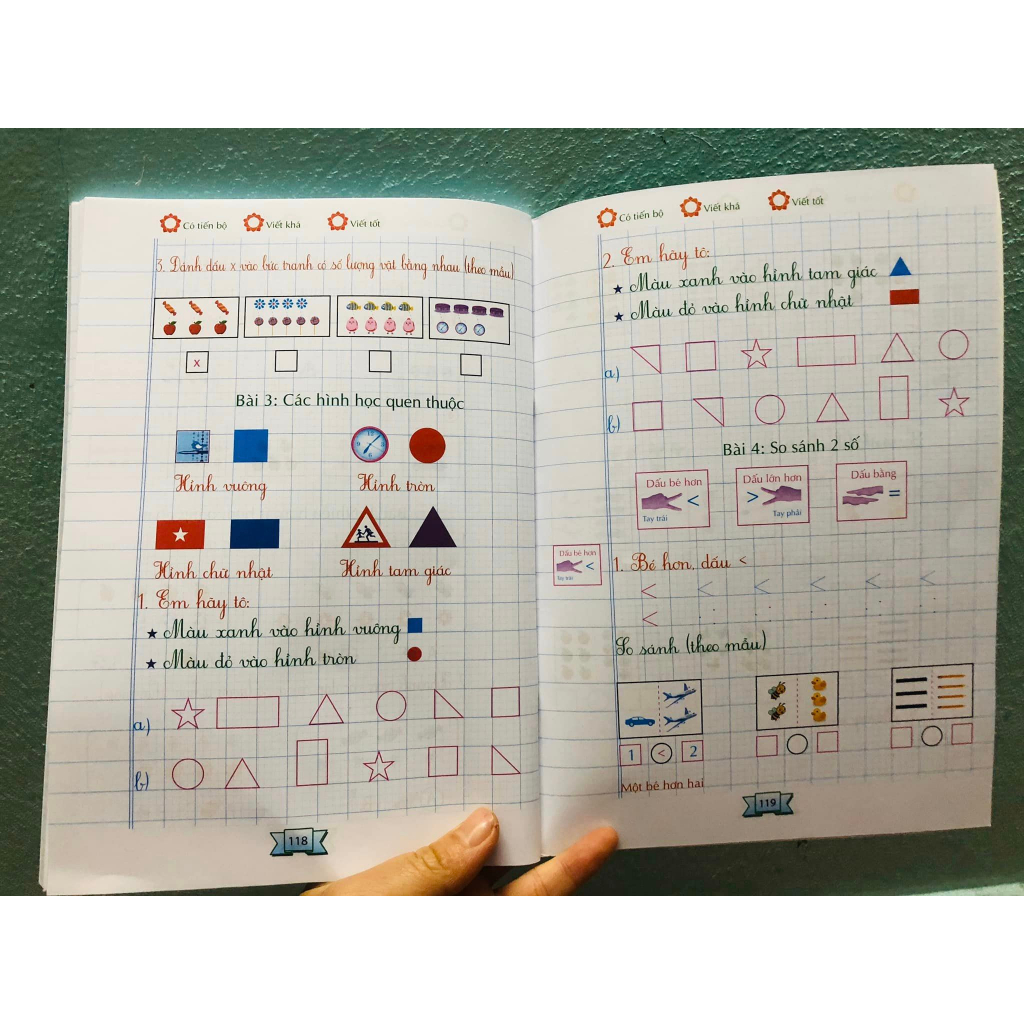 Có tiến bộ Viết khá Viết tốt
3. Đánh dấu x vào bức tranh có số lượng vật bằng nhau (theo mẫu)
x
Bài 3: Các hình học quen thuộc
Hình vuông Hình tròn
Hình chữ nhật Hình tam giác
1. Em hãy tô:
★ Màu xanh vào hình vuông
★ Màu đỏ vào hình tròn
a)
b)
118
Có tiến bộ Viết khá Viết tốt
2. Em hãy tô:
★ Màu xanh vào hình tam giác
★ Màu đỏ vào hình chữ nhật
a)
b)
Bài 4: So sánh 2 số
Dấu bé hơn Dấu lớn hơn Dấu bằng
< > =
Tay trái Tay phải
Dấu bé hơn
<
Tay trái
1. Bé hơn, dấu <
< < < < < <
<
So sánh (theo mẫu)
1 < 2
Một bé hơn hai
119